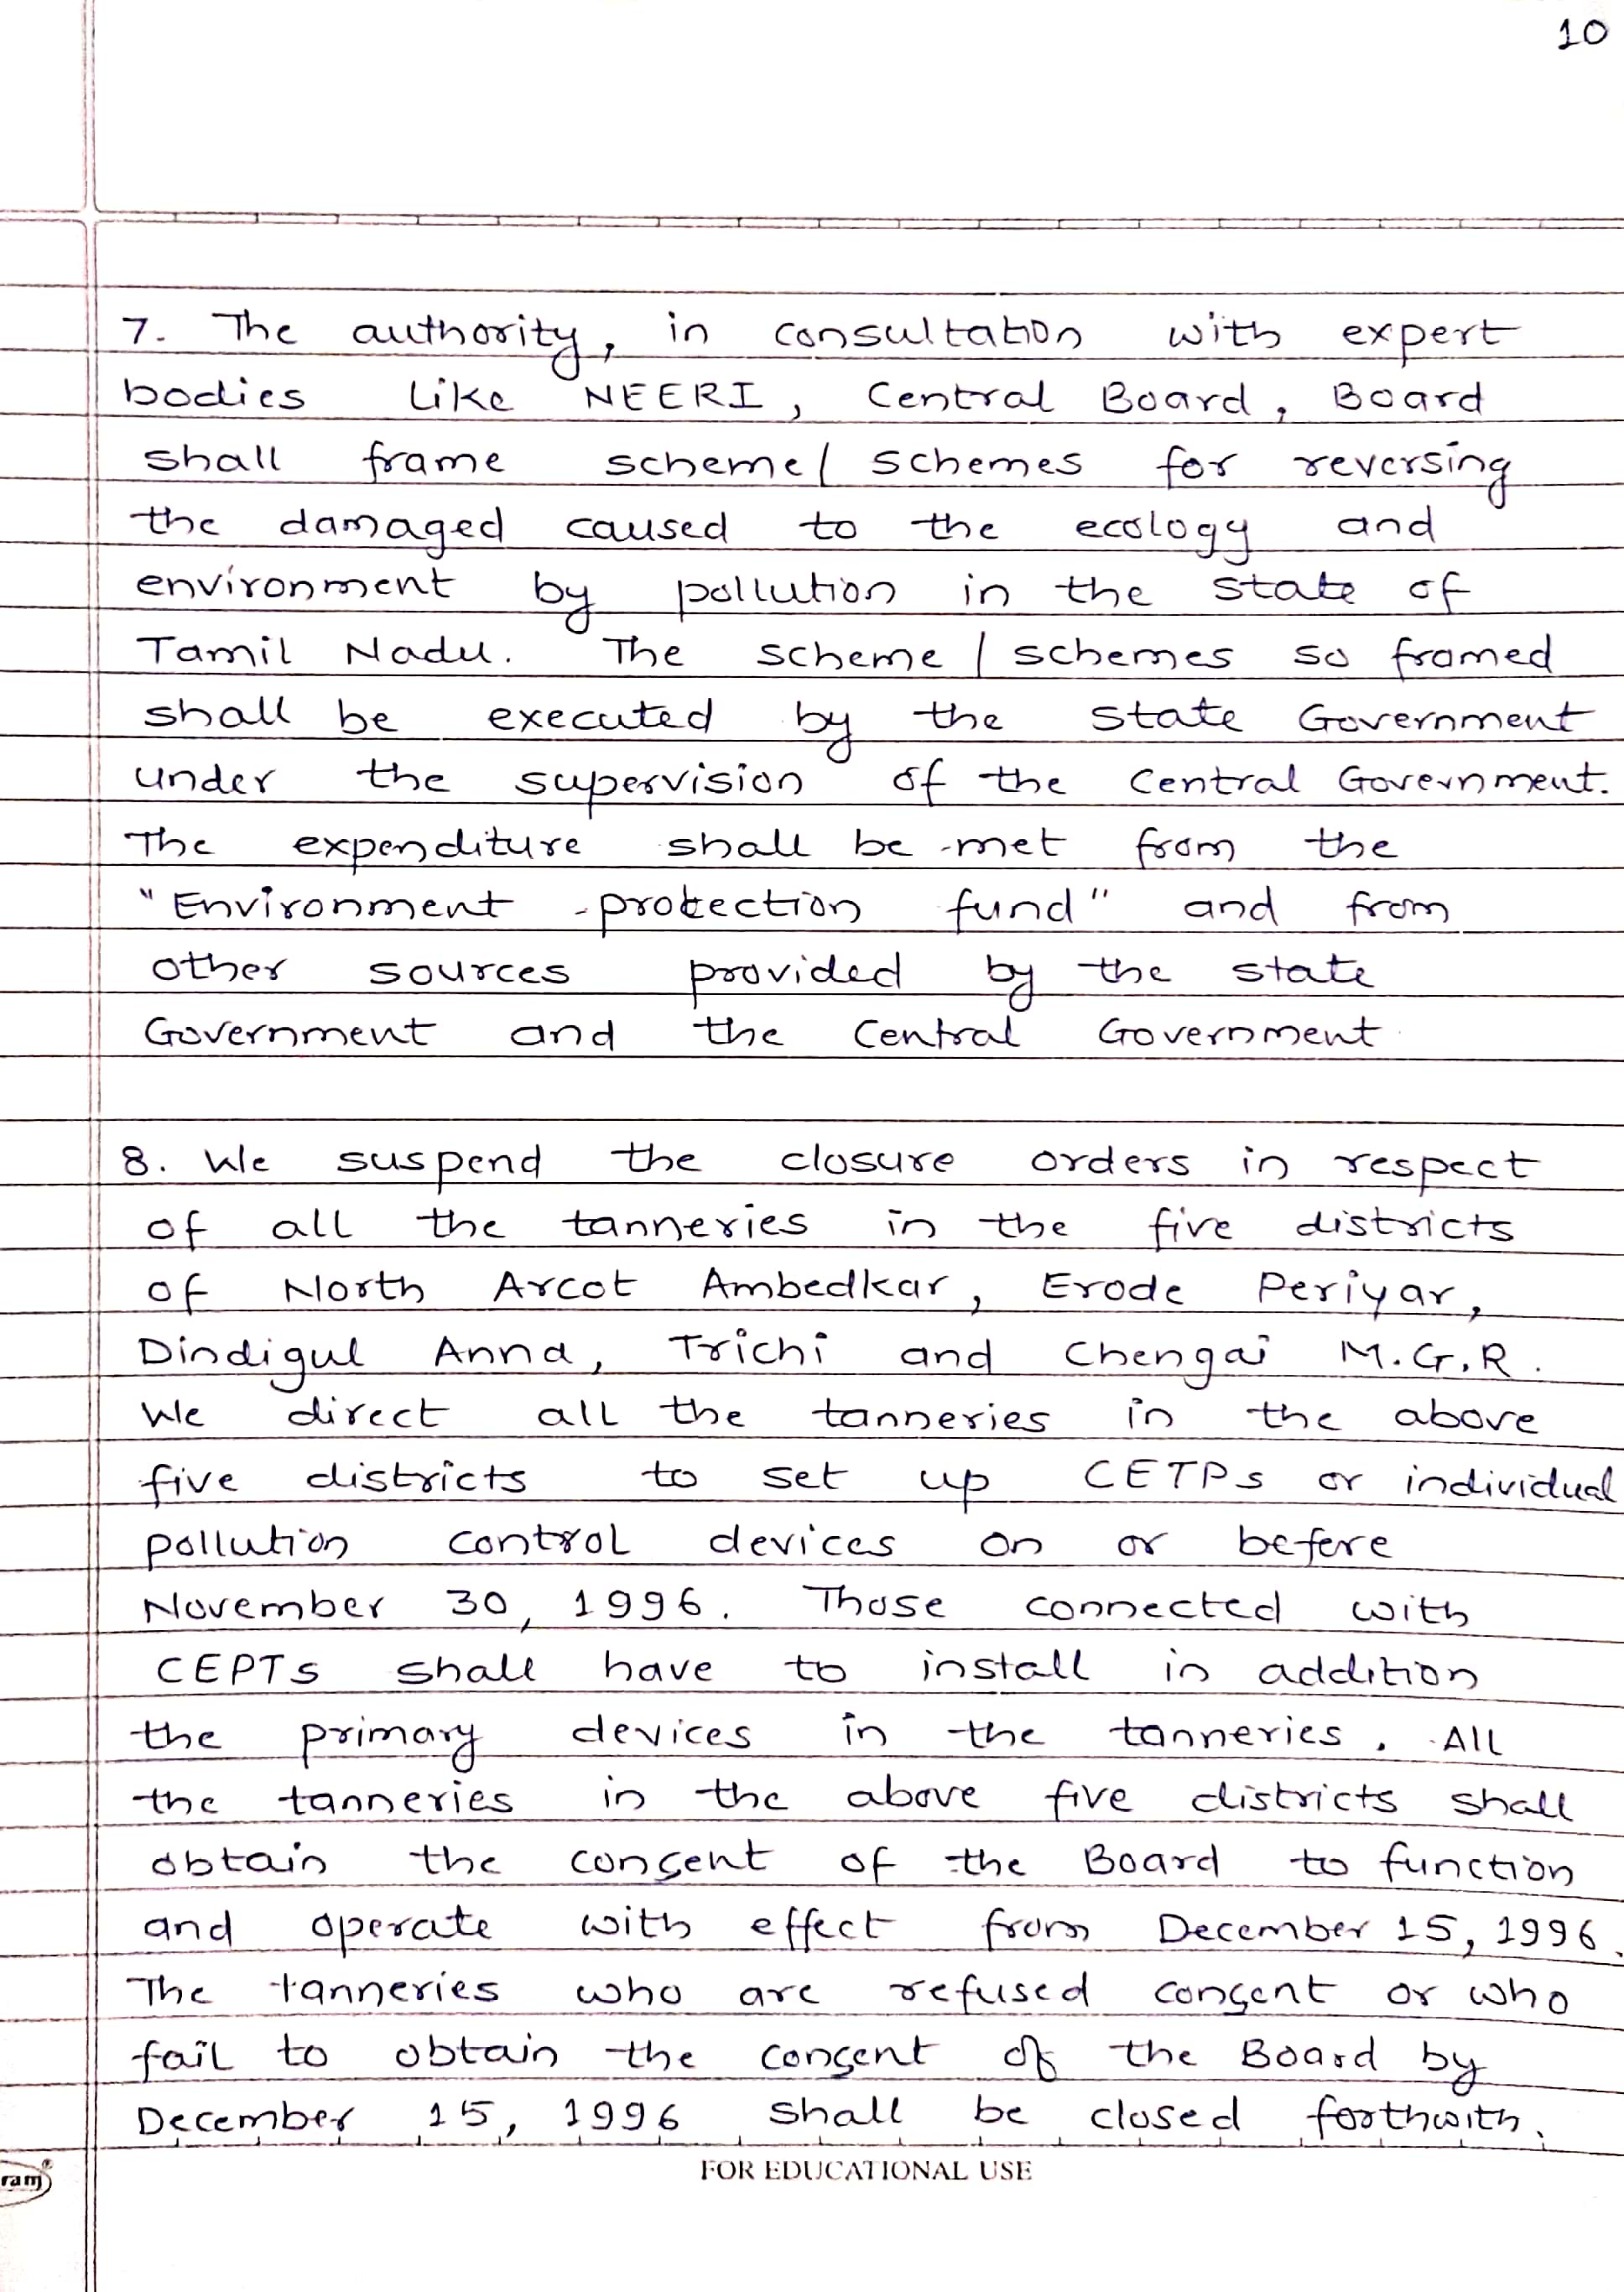 10
7. The authority, in consultation with expert
bodies like NEERI, Central Board, Board
shall frame scheme/ schemes for reversing
the damaged caused to the ecology and
environment by pollution in the state of
Tamil Nadu. The scheme / schemes so framed
shall be executed by the state Government
under the supervision of the Central Government.
The expenditure shall be met from the
"Environment protection fund" and from
other sources provided by the state
Government and the Central Government
8. We suspend the closure orders in respect
of all the tanneries in the five districts
of North Arcot Ambedkar, Erode Periyar,
Dindigul Anna, Trichi and Chengai M.G.R.
We direct all the tanneries in the above
five districts to set up CETPs or individual
pollution control devices on or before
November 30, 1996. Those connected with
CEPTs shall have to install in addition
the primary devices in the tanneries. All
the tanneries in the above five districts shall
obtain the consent of the Board to function
and operate with effect from December 15, 1996.
The tanneries who are refused consent or who
fail to obtain the consent of the Board by
December 15, 1996 shall be closed forthwith.
ram
FOR EDUCATIONAL USE